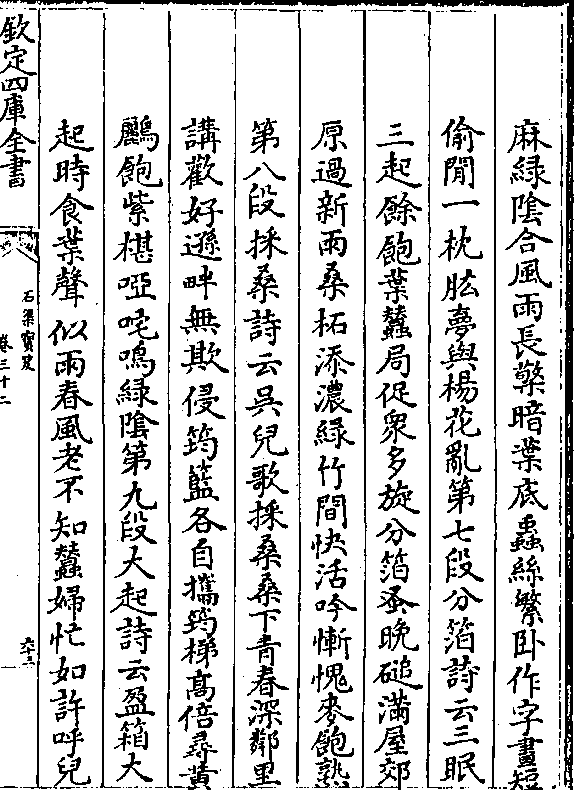 麻緑隂合風雨長檠暗葉底蟲絲繁卧作字畫短
偷閒一枕肱夢與楊花亂第七段分箔詩云三眠
三起餘飽葉蠶局促衆多旋分箔蚤晚磓滿屋郊
原過新雨桑柘添濃緑竹間快活吟慚愧麥飽熟
第八段採桑詩云吳兒歌採桑桑下青春深鄰里
講歡好遜畔無欺侵筠籃各自攜筠梯髙倍尋黄
鸝飽紫椹啞咤鳴緑隂第九段大起詩云盈箱大
起時食葉聲似雨春風老不知蠶婦忙如許呼兒
欽定四庫全書
石渠寳笈
卷三十二
六十三